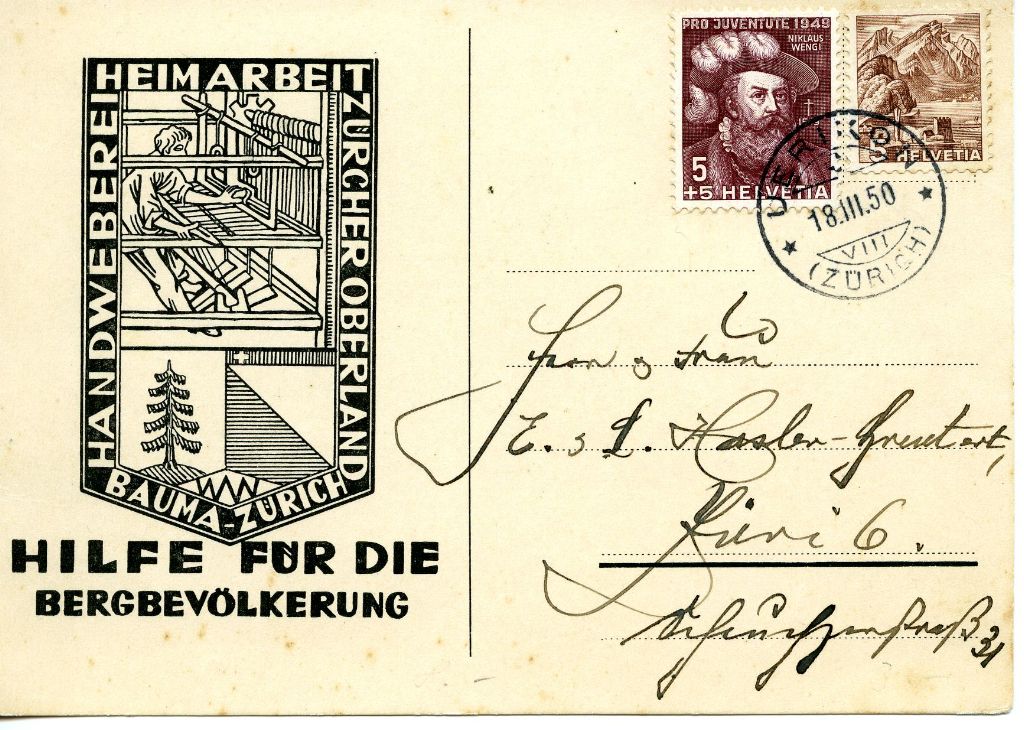 HANDWEBEREI
HEIMARBEIT
ZÜRCHER OBERLAND
BAUMA-ZÜRICH
HILFE FÜR DIE
BERGBEVÖLKERUNG
PRO JUVENTUTE 1949
NIKLAUS
WENGI
5
+5 HELVETIA
3 HELVETIA
UERIKON
18.III.50
VIII
(ZÜRICH)
Herr & Frau
E. & L. Hasler-Greutert,
Züri 6.
Scheuchzerstraß 31